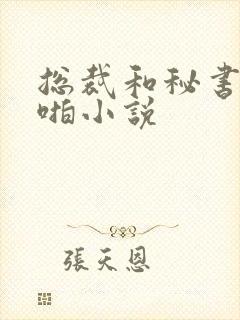 总裁和秘书
啪小说
張天恩